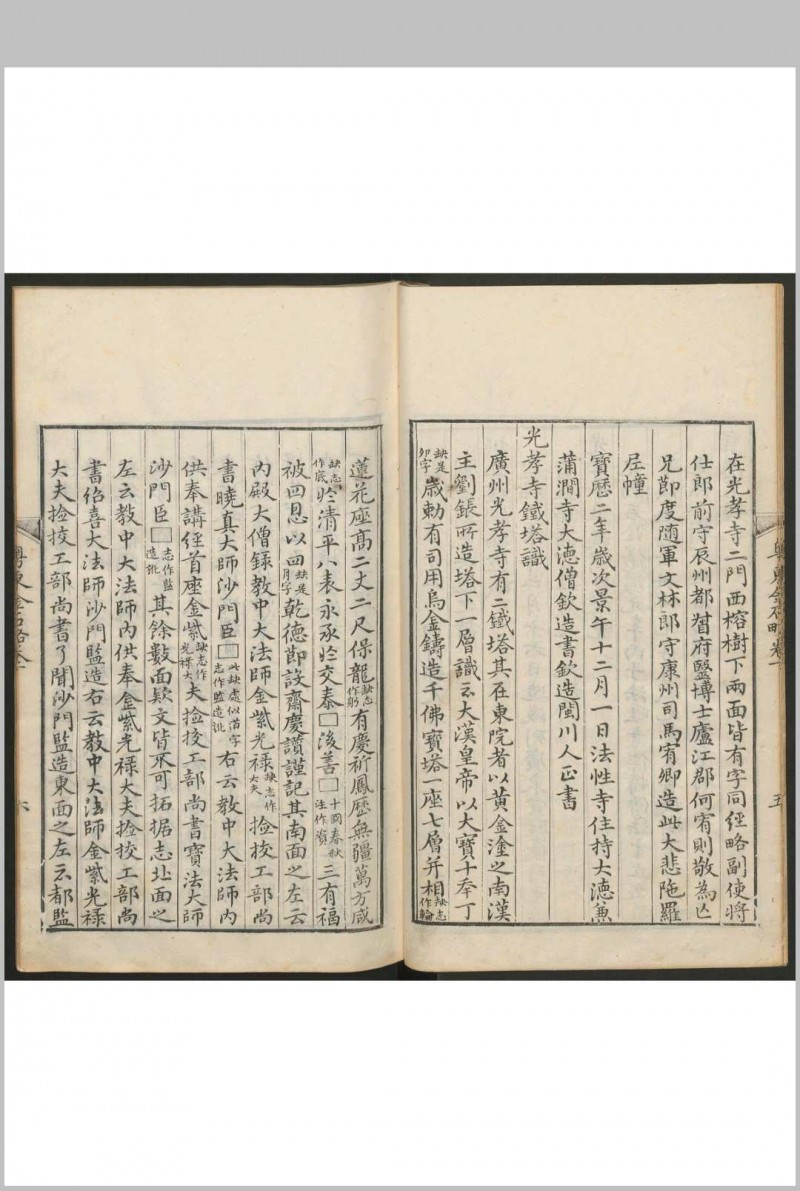 在光孝寺二門西榕樹下兩面皆有字同經略副使將
仕郎前守辰州都督府毉博士盧江郡何宥則敬為亡
兄節度隨軍文林郎守康州司馬宥卿造此大悲陁羅
尼幢
寶歷二年歲次景午十二月一日法性寺住持大德兼
蒲澗寺大德僧欽造書欽造閩川人正書
光孝寺鐵塔識
廣州光孝寺有二鐵塔其在東院者以黄金塗之南漢
主劉鋹所造塔下一層識云大漢皇帝以大寶十秊丁
缺是卯字歲勅有司用烏金鑄造千佛寶塔一座七層并相缺志作輪
蓮花座高二丈二尺保龍缺志作躬有慶祈鳳歷無疆萬方咸
缺志作底於清平八表永承於交泰□後善□十國春秋注作資三有福
被四恩以四缺是月字乾德節設齋慶讚謹記其南面之左云
內殿大僧錄教中大法師金紫光祿缺志作大夫撿挍工部尚
書曉真大師沙門臣□此缺處似滔字志作監造訛右云教中大法師內
供奉講經首座金紫缺志作光祿大夫撿挍工部尚書寶法大師
沙門臣□志作監造訛其餘數面欵文皆不可拓据志北面之
左云教中大法師內供奉金紫光祿大夫撿挍工部尚
書紹喜大法師沙門監造右云教中大法師金紫光祿
大夫撿挍工部尚書了聞沙門監造東面之左云都監
粵東金石略卷一
五
粵東金石略卷一
六